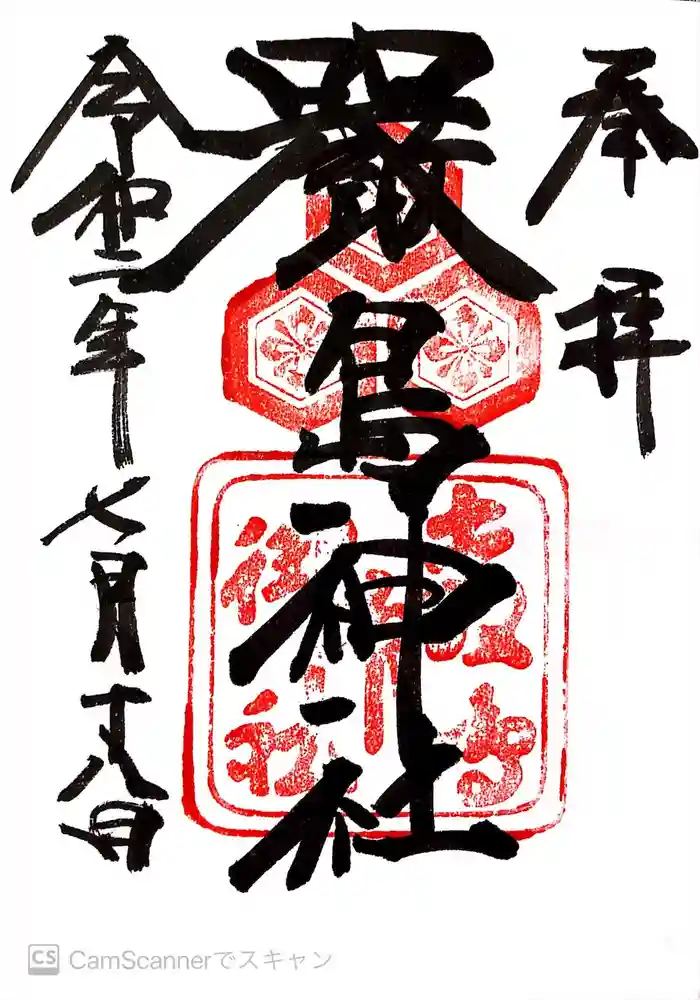 奉拝
嚴島神社
令和二年七月十八日
CamScannerでスキャン